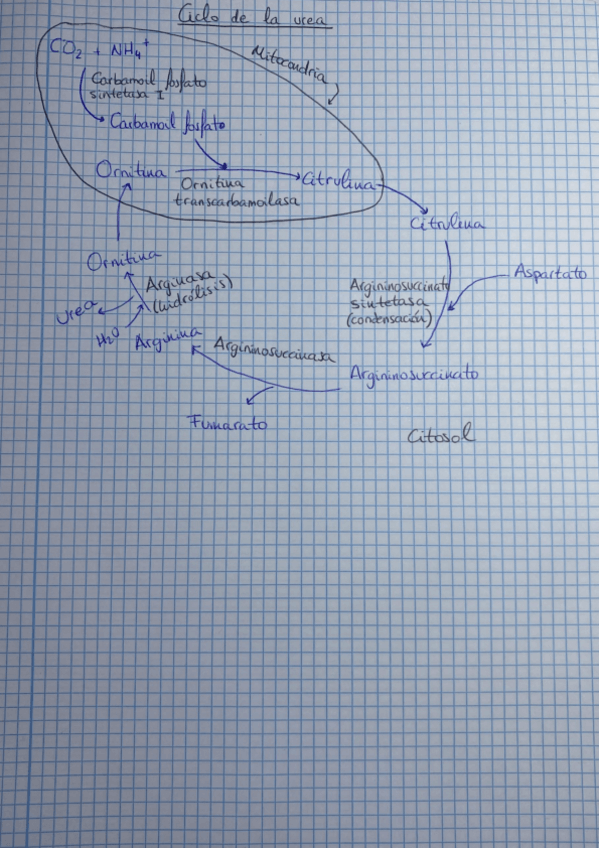 Ciclo de la urea
CO₂ + NH₄⁺
Mitocondria
Carbamoil fosfato
sintetasa I
Carbamoil fosfato
Ornitina
Citrulina
Ornitina
transcarbamoilasa
Citrulina
Ornitina
Aspartato
Arginasa
(hidrólisis)
Argininosuccinato
sintetasa
(condensación)
Urea
H₂O
Arginina
Argininosuccinasa
Argininosuccinato
Fumarato
Citosol